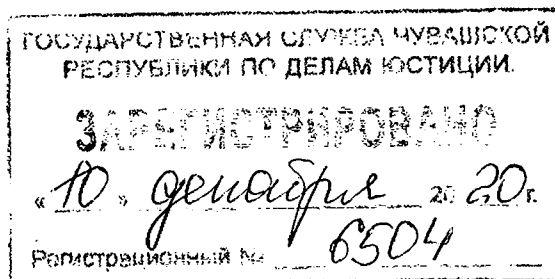 ГОСУДАРСТВЕННАЯ СЛУЖБА ЧУВАШСКОЙ
РЕСПУБЛИКИ ПО ДЕЛАМ ЮСТИЦИИ.
ЗАРЕГИСТРИРОВАНО
« 10 » декабря 20 20 г.
Регистрационный № 6504